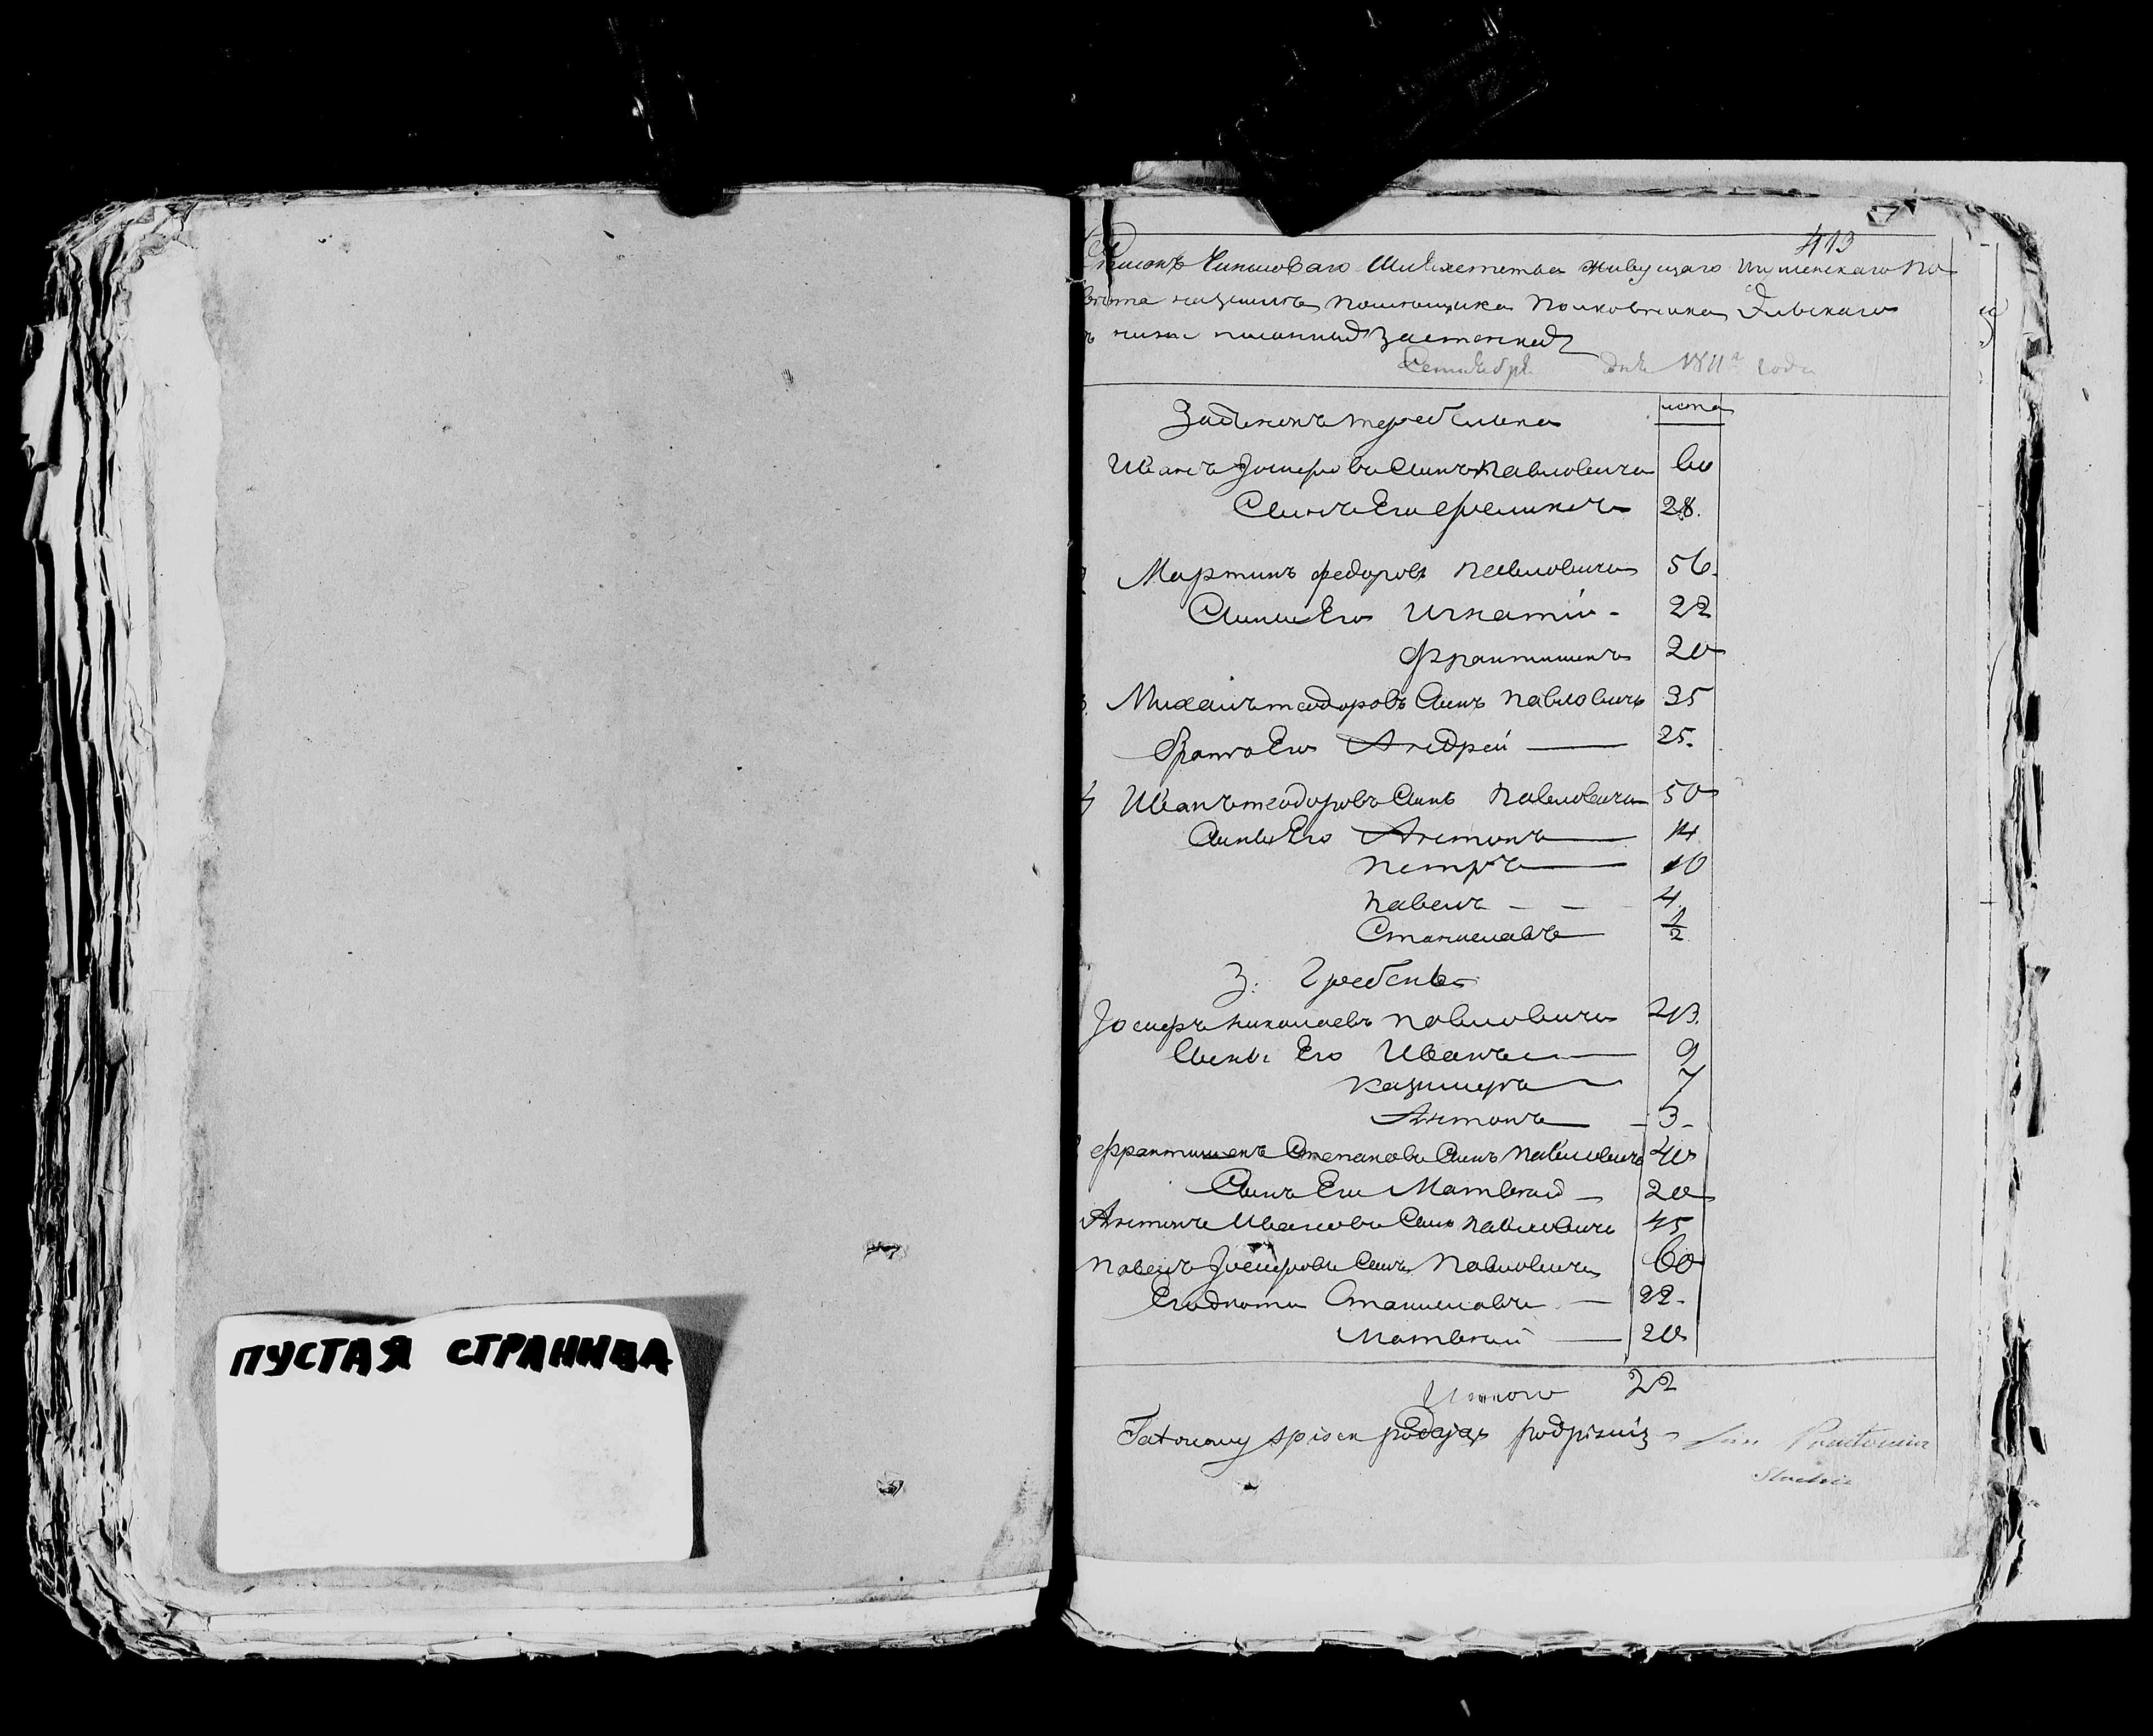 ПУСТАЯ СТРАНИЦА
413
Списокъ Чиншоваго Шляхетства живущаго Игуменскаго По
вѣта наземлѣ помѣщика полковника
ъ ниже писанныхъ застенкахъ
Сентября дня 1811го года
Застенокъ теребелька лета
Иванъ Іосифовъ Синъ Павловичъ 60
Синъ Его Феликсъ 28.
Мартинъ федоровъ Павловичъ 56.
Сины Его Игнатій - 22
Франтишекъ 20
3. Михаилъ теодоровъ Синъ Павловичъ 35
Братъ Его Андрей — 25.
4 Иванъ теодоровъ Синъ Павловичъ 50
Сины Его Антонъ — 14
Петръ — 10
Павелъ — — 4.
Станиславъ — 1/2
З: Гребенка
Іосифъ Николаевъ Павловичъ 43.
Сины Его Иванъ — 9
Казимеръ — 7
Антонъ — 3-
Франтишекъ Степановъ Синъ Павловичъ 40
Синъ Его Матвѣй — 20
Антонъ Ивановъ Синъ Павловичъ 45
Павелъ Іосифовъ Синъ Павловичъ 60
Станиславъ — 22-
Матвѣй — 20
Итого 22
Takowy spisek podając podpisuię